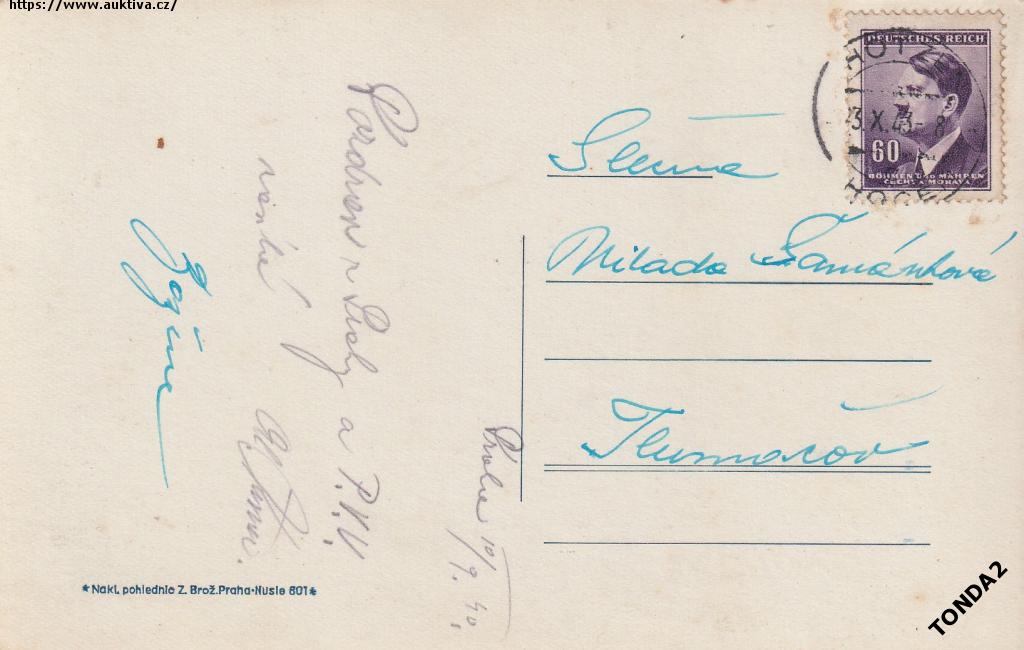 https://www.auktiva.cz/
DEUTSCHES REICH
3.X.43-8
60
BÖHMEN UND MÄHREN
ČECHY A MORAVA
Slečna
Milada Šamánková
Tlumačov
Pozdrav z Prahy a P.V.V.
Praha 10/9. 40.
*Nakl. pohlednic Z. Brož.Praha-Nusle 601*
TONDA2